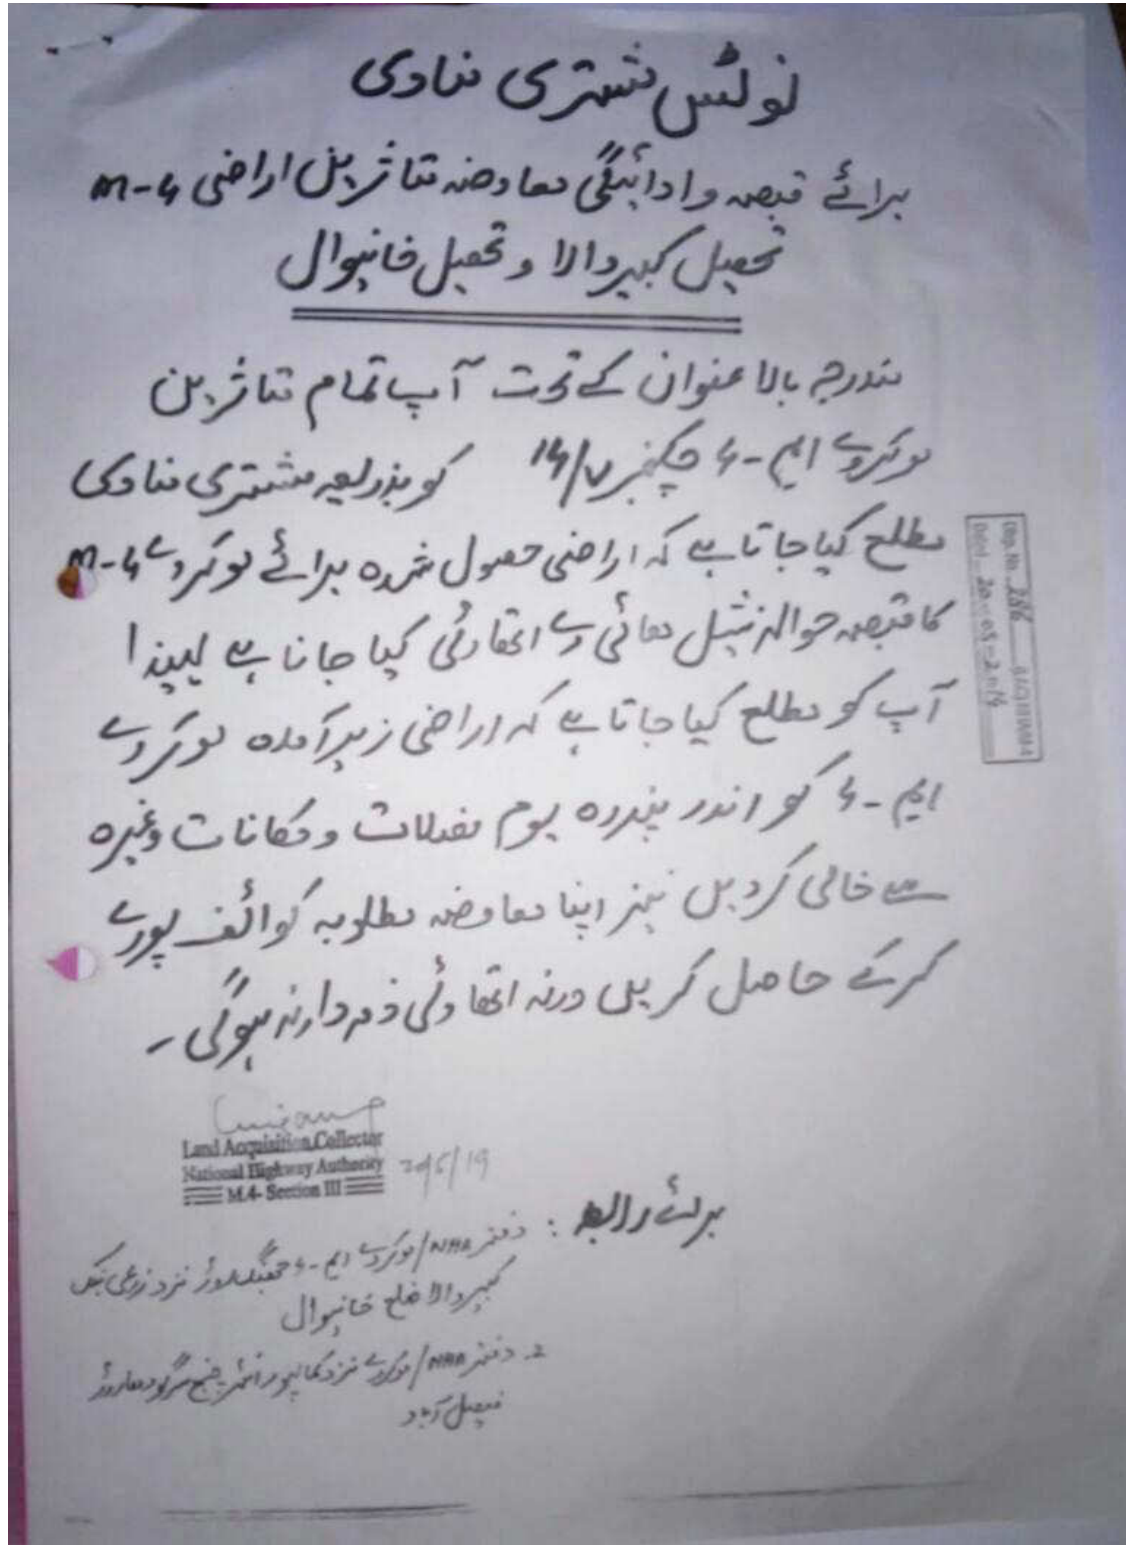 نوٹس مشتری منادی
برائے قبضہ و ادائیگی معاوضہ متاثرین اراضی M-4
تحصیل کبیروالا و تحصیل خانیوال
مندرجہ بالا عنوان کے تحت آپ تمام متاثرین
موٹروے ایم-4 چکنمبر کو بذریعہ مشتری منادی
مطلع کیا جاتا ہے کہ اراضی حصول شدہ برائے موٹروے M-4
کا قبضہ حوالہ نیشنل ہائی وے اتھارٹی کیا جانا ہے لہیذا
آپ کو مطلع کیا جاتا ہے کہ اراضی زیر آمدہ موٹروے
ایم-4 کو اندر پندرہ یوم فصلات و مکانات وغیرہ
سے خالی کردیں نیز اپنا معاوضہ مطلوبہ کوائف پورے
کرکے حاصل کریں ورنہ اتھارٹی ذمہ دار نہ ہوگی۔
Disp. No. 286
Dated 20-05-2019
Land Acquisition Collector
National Highway Authority
M.4- Section III
20/5/19
برائے رابطہ :
دفتر NHA/موٹروے ایم-4 جھنگ روڈ نزد زرعی بنک
کبیروالا ضلع خانیوال
2. دفتر NHA/موٹروے نزد کمالپور انٹرچینج سرگودھا روڈ
فیصل آباد